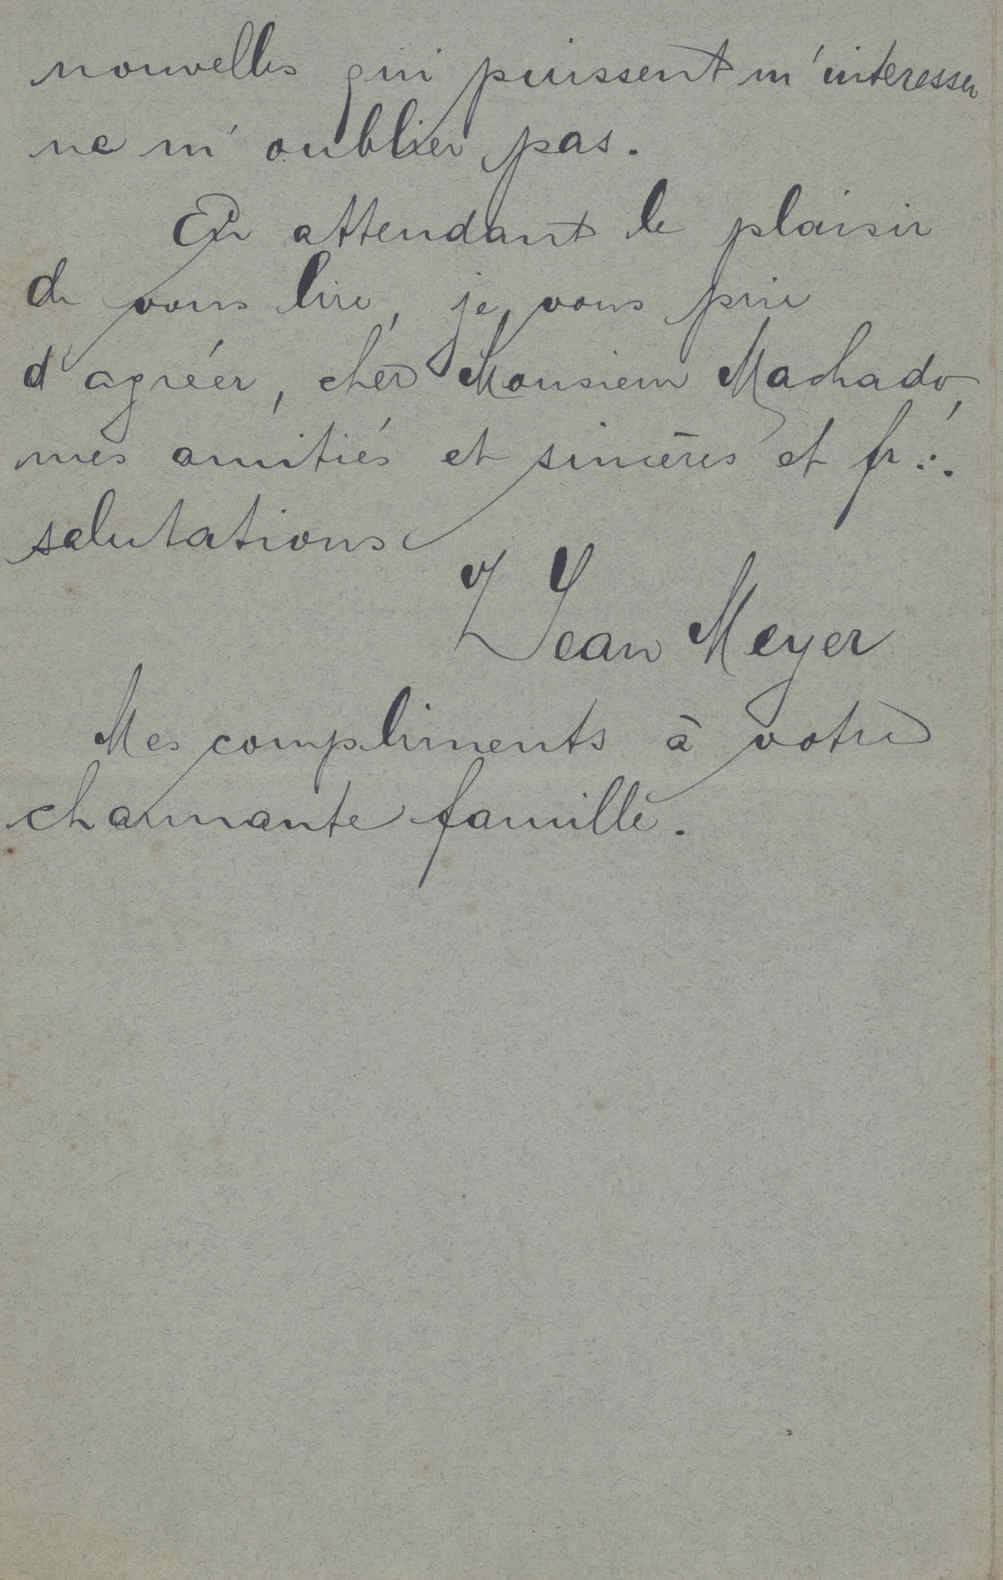 nouvelles qui puissent m'interesser
ne m'oublier pas.
En attendant le plaisir
de vous lire, je vous prie
d'agréer, cher Monsieur Machado,
mes amitiés et sincères et fr∴
salutations
Jean Meyer
Mes compliments à votre
charmante famille.